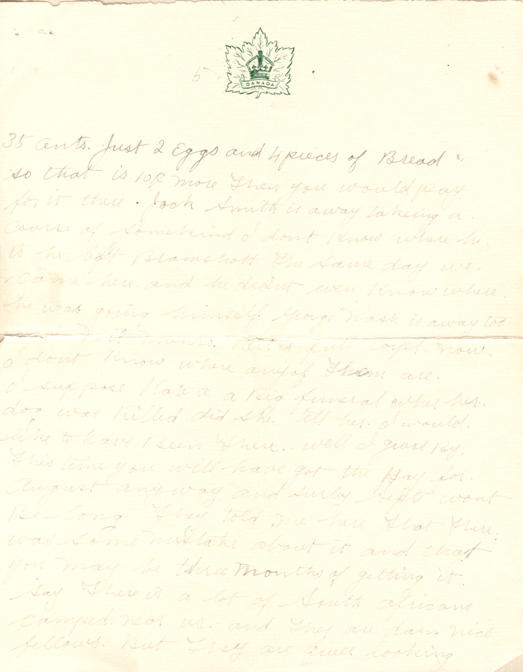 5
CANADA
35 cents. Just 2 Eggs and 4 pieces of Bread"
so that is 10¢ more then you would pay
for it there. Jack Smith is away takeing a
course of somekind I dont Know where he
is he left Bramshott the same day we
came here and he didnt even Know where
he was going himself. George Nash is away too
now.
I dont Know where any of them are.
I suppose had a Big funeral when her
dog was Killed did she. tell her I would
like to have Been there. well I guess By
This time you will have got the Pay for
August any way and surly Sept wont
Be Long They told me here that there
was some mistake about it and that
you may be three months of getting it.
Say There is a lot of South africans
camped near us. and They are darn nice
fellows. But They are quer looking